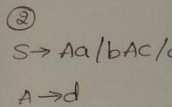 ②
S → Aa/bAC/
A → d